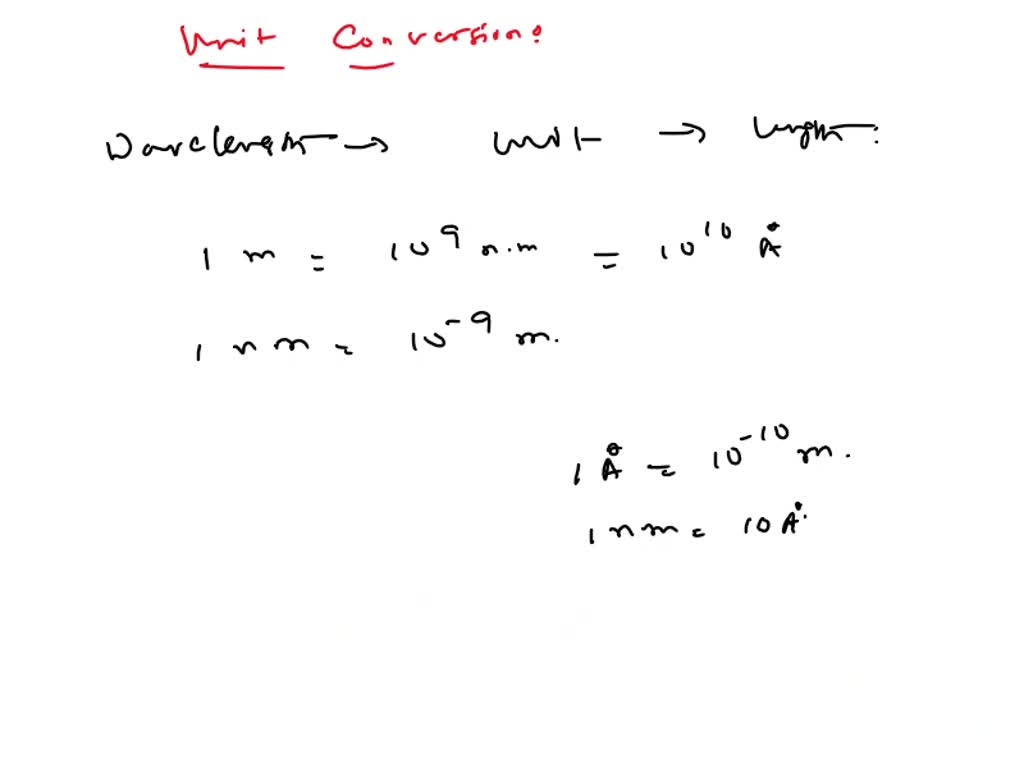 Unit Conversion:
Wavelength → unit → length:
1 m = 10⁹ n.m = 10¹⁰ Å
1 nm = 10⁻⁹ m.
1 Å = 10⁻¹⁰ m.
1 nm = 10 Å.